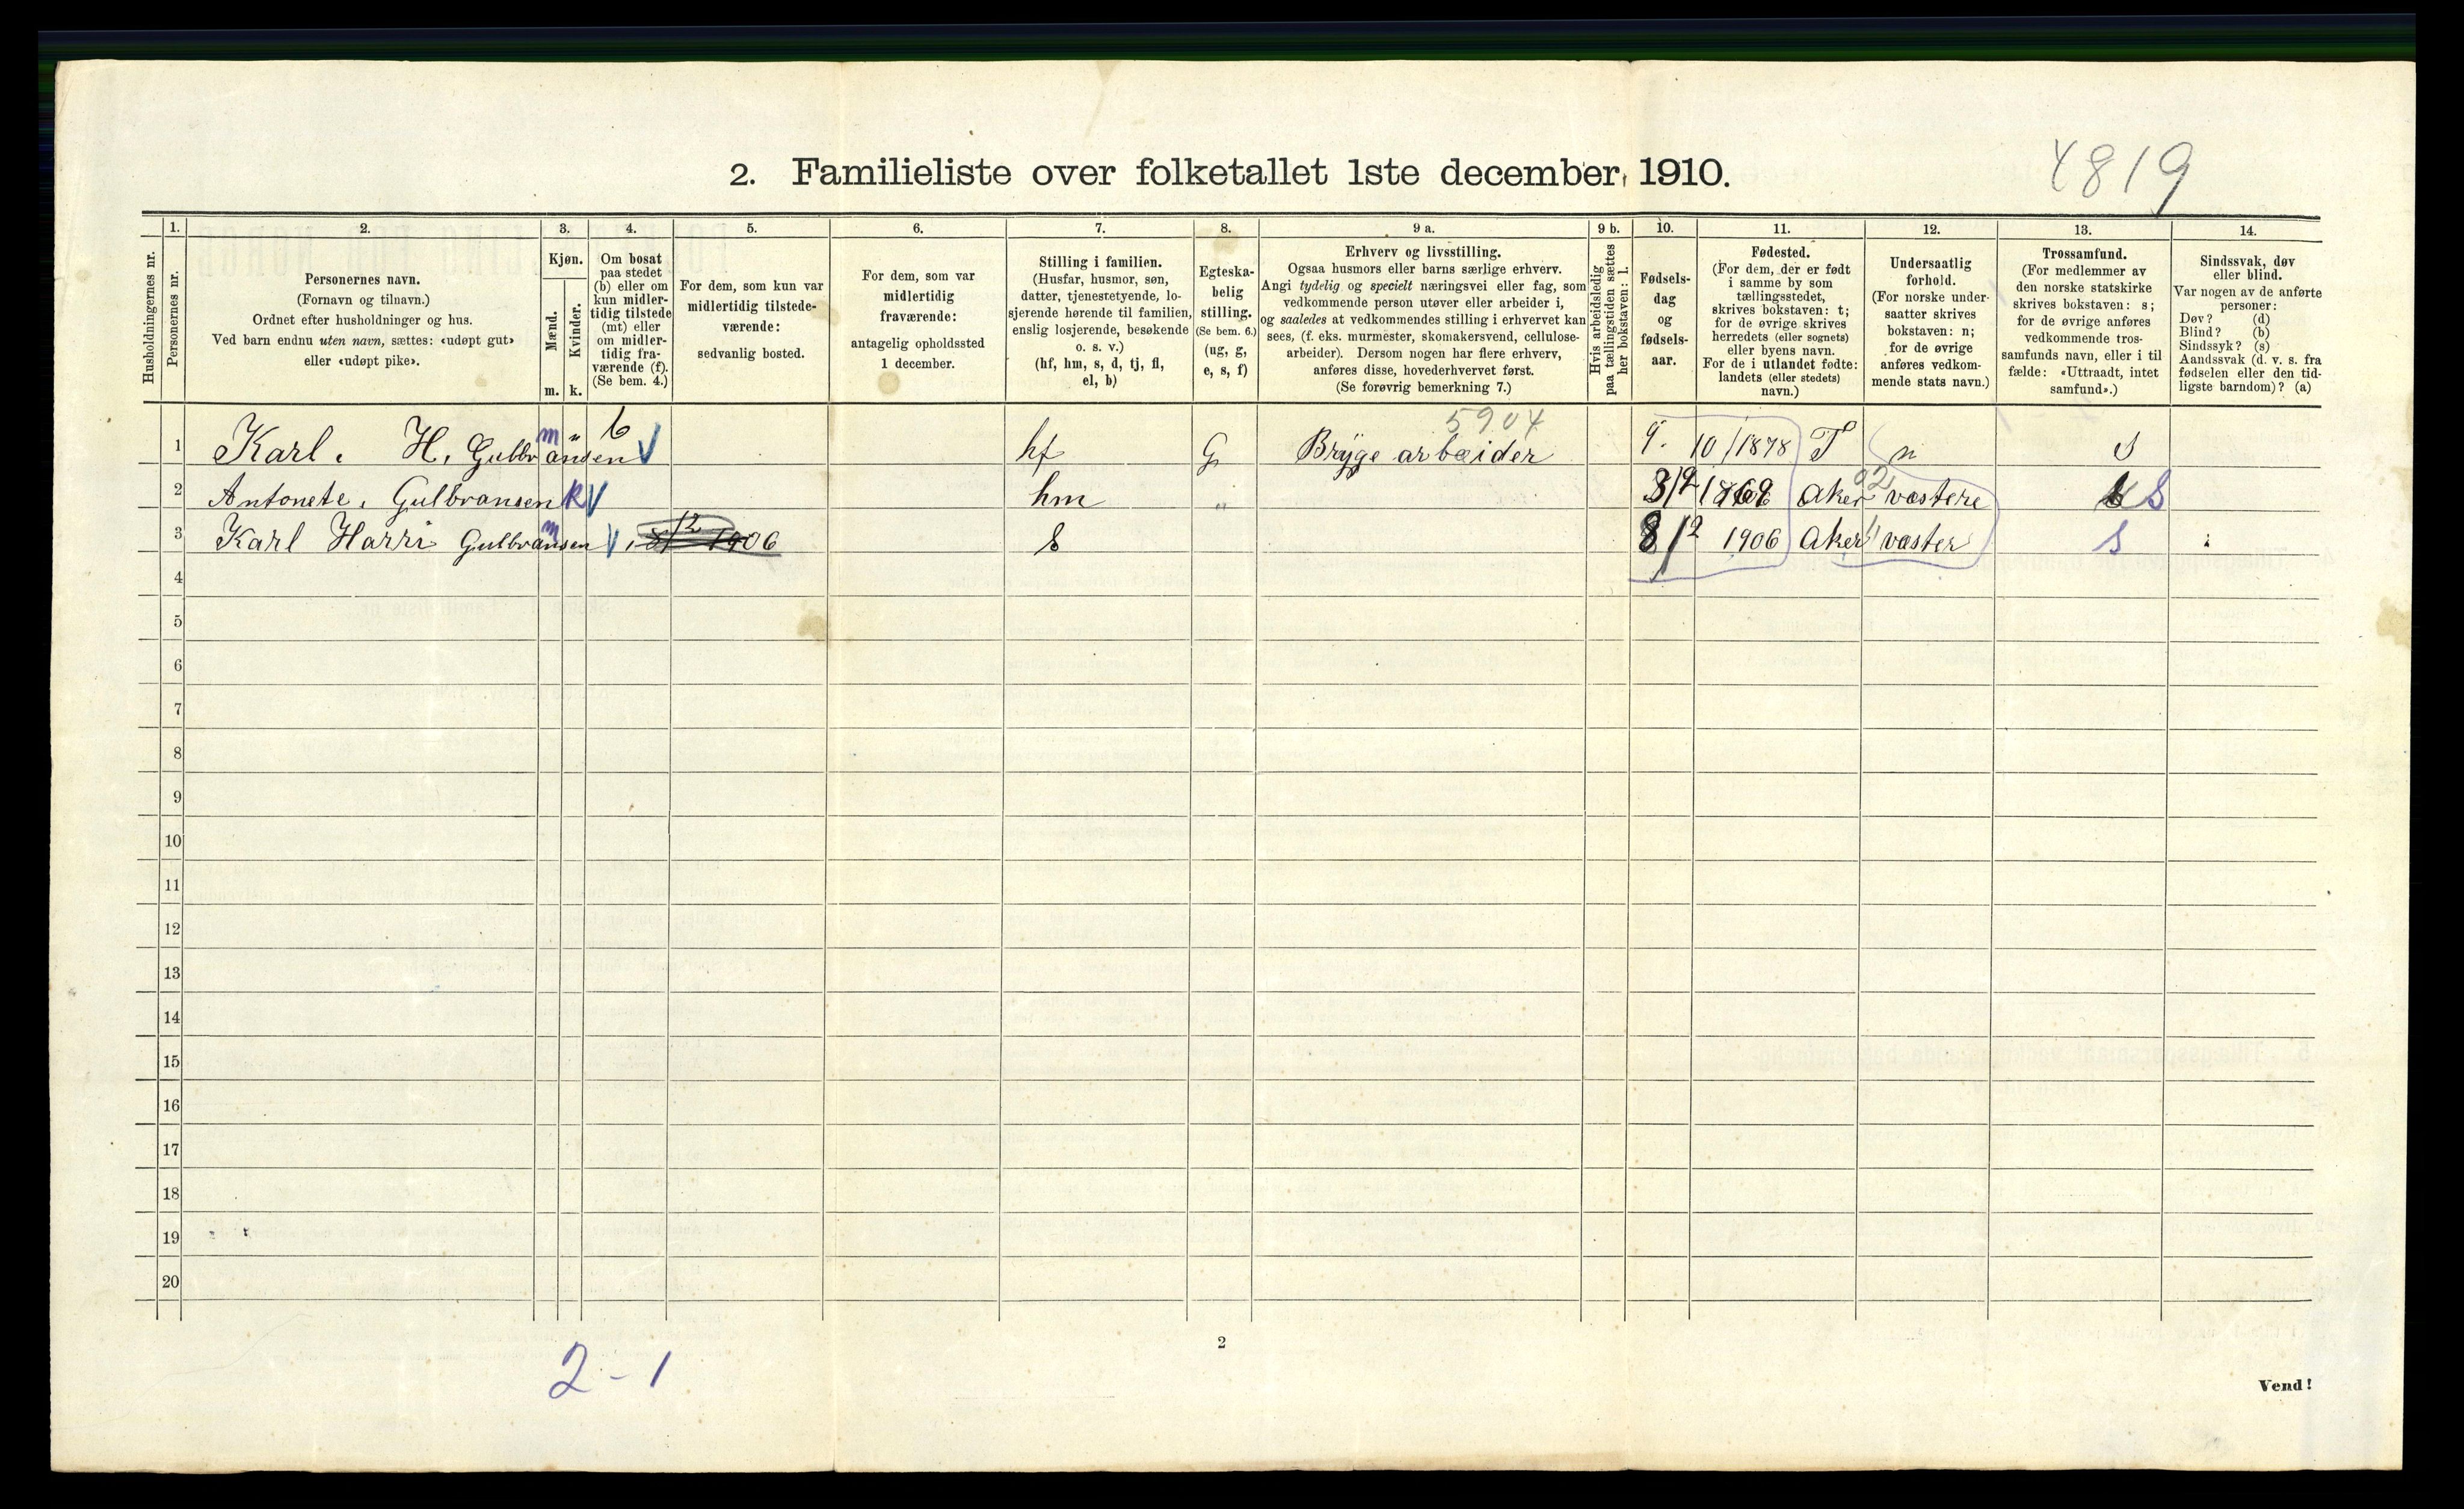 4819
2. Familieliste over folketallet 1ste december 1910.
1. 2. 3. 4. 5. 6. 7. 8. 9 a. 9 b. 10. 11. 12. 13. 14.
Husholdningernes nr.
Personernes nr.
Personernes navn.
(Fornavn og tilnavn.)
Ordnet efter husholdninger og hus.
Ved barn endnu uten navn, sættes: «udøpt gut»
eller «udøpt pike».
Kjøn.
Mænd.
m.
Kvinder.
k.
Om bosat
paa stedet
(b) eller om
kun midler-
tidig tilstede
(mt) eller
om midler-
tidig fra-
værende (f).
(Se bem. 4.)
For dem, som kun var
midlertidig tilstede-
værende:
sedvanlig bosted.
For dem, som var
midlertidig
fraværende:
antagelig opholdssted
1 december.
Stilling i familien.
(Husfar, husmor, søn,
datter, tjenestetyende, lo-
sjerende hørende til familien,
enslig losjerende, besøkende
o. s. v.)
(hf, hm, s, d, tj, fl,
el, b)
Egteska-
belig
stilling.
(Se bem. 6.)
(ug, g,
e, s, f)
Erhverv og livsstilling.
Ogsaa husmors eller barns særlige erhverv.
Angi tydelig og specielt næringsvei eller fag, som
vedkommende person utøver eller arbeider i,
og saaledes at vedkommendes stilling i erhvervet kan
sees, (f. eks. murmester, skomakersvend, cellulose-
arbeider). Dersom nogen har flere erhverv,
anføres disse, hovederhvervet først.
(Se forøvrig bemerkning 7.)
Hvis arbeidsledig
paa tællingstiden sættes
her bokstaven: l.
Fødsels-
dag
og
fødsels-
aar.
Fødested.
(For dem, der er født
i samme by som
tællingsstedet,
skrives bokstaven: t;
for de øvrige skrives
herredets (eller sognets)
eller byens navn.
For de i utlandet fødte:
landets (eller stedets)
navn.)
Undersaatlig
forhold.
(For norske under-
saatter skrives
bokstaven: n;
for de øvrige
anføres vedkom-
mende stats navn.)
Trossamfund.
(For medlemmer av
den norske statskirke
skrives bokstaven: s;
for de øvrige anføres
vedkommende tros-
samfunds navn, eller i til
fælde: «Uttraadt, intet
samfund».)
Sindssvak, døv
eller blind.
Var nogen av de anførte
personer:
Døv? (d)
Blind? (b)
Sindssyk? (s)
Aandssvak (d. v. s. fra
fødselen eller den tid-
ligste barndom)? (a)
5904
1 Karl. H. Gulbransen m " b V hf G Brygearbeider 9. 10/1878 T n S
2 Antonete. Gulbransen k V hm " 3/9 1869 Aker vestere 02 S
3 Karl Harri Gulbransen m V 12 1906 s 8/2 1906 Aker vester " S
4
5
6
7
8
9
10
11
12
13
14
15
16
17
18
19
20
2
2-1
Vend!